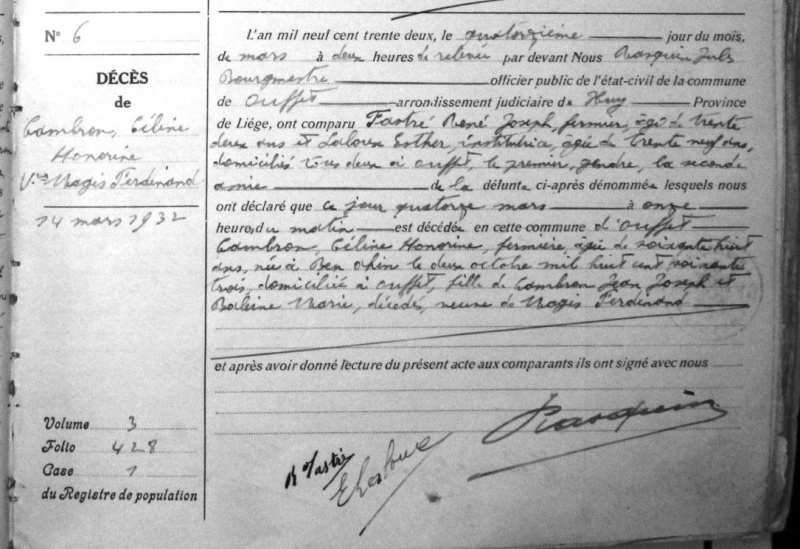 N° 6
DÉCÈS
de
Cambron, Céline
Honorine
Vve Magis Ferdinand
14 mars 1932
Volume 3
Folio 428
Case 1
du Registre de population
L'an mil neuf cent trente deux, le quatorzième jour du mois,
de mars à deux heures de relevée par devant Nous Rasquin Jules
Bourgmestre officier public de l'état-civil de la commune
de Ouffet arrondissement judiciaire de Huy Province
de Liége, ont comparu Fastré René Joseph, fermier, âgé de trente
deux ans et Esther, institutrice, âgée de trente neuf ans,
domiciliés tous deux à Ouffet, le premier, gendre, la seconde
amie de la défunte ci-après dénommée lesquels nous
ont déclaré que ce jour quatorze mars à onze
heures du matin est décédée en cette commune d'Ouffet
Cambron, Céline Honorine, fermière, âgée de soixante huit
ans, née à Ben Ahin le deux octobre mil huit cent soixante
trois, domiciliée à Ouffet, fille de Cambron Jean Joseph et
Marie, décédés, veuve de Magis Ferdinand
et après avoir donné lecture du présent acte aux comparants ils ont signé avec nous
R Fastré
Rasquin